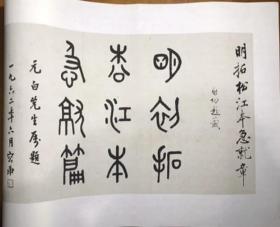 明拓松江本急就章
明初拓
松江本
急就篇
元白先生属題
一九六二年六月